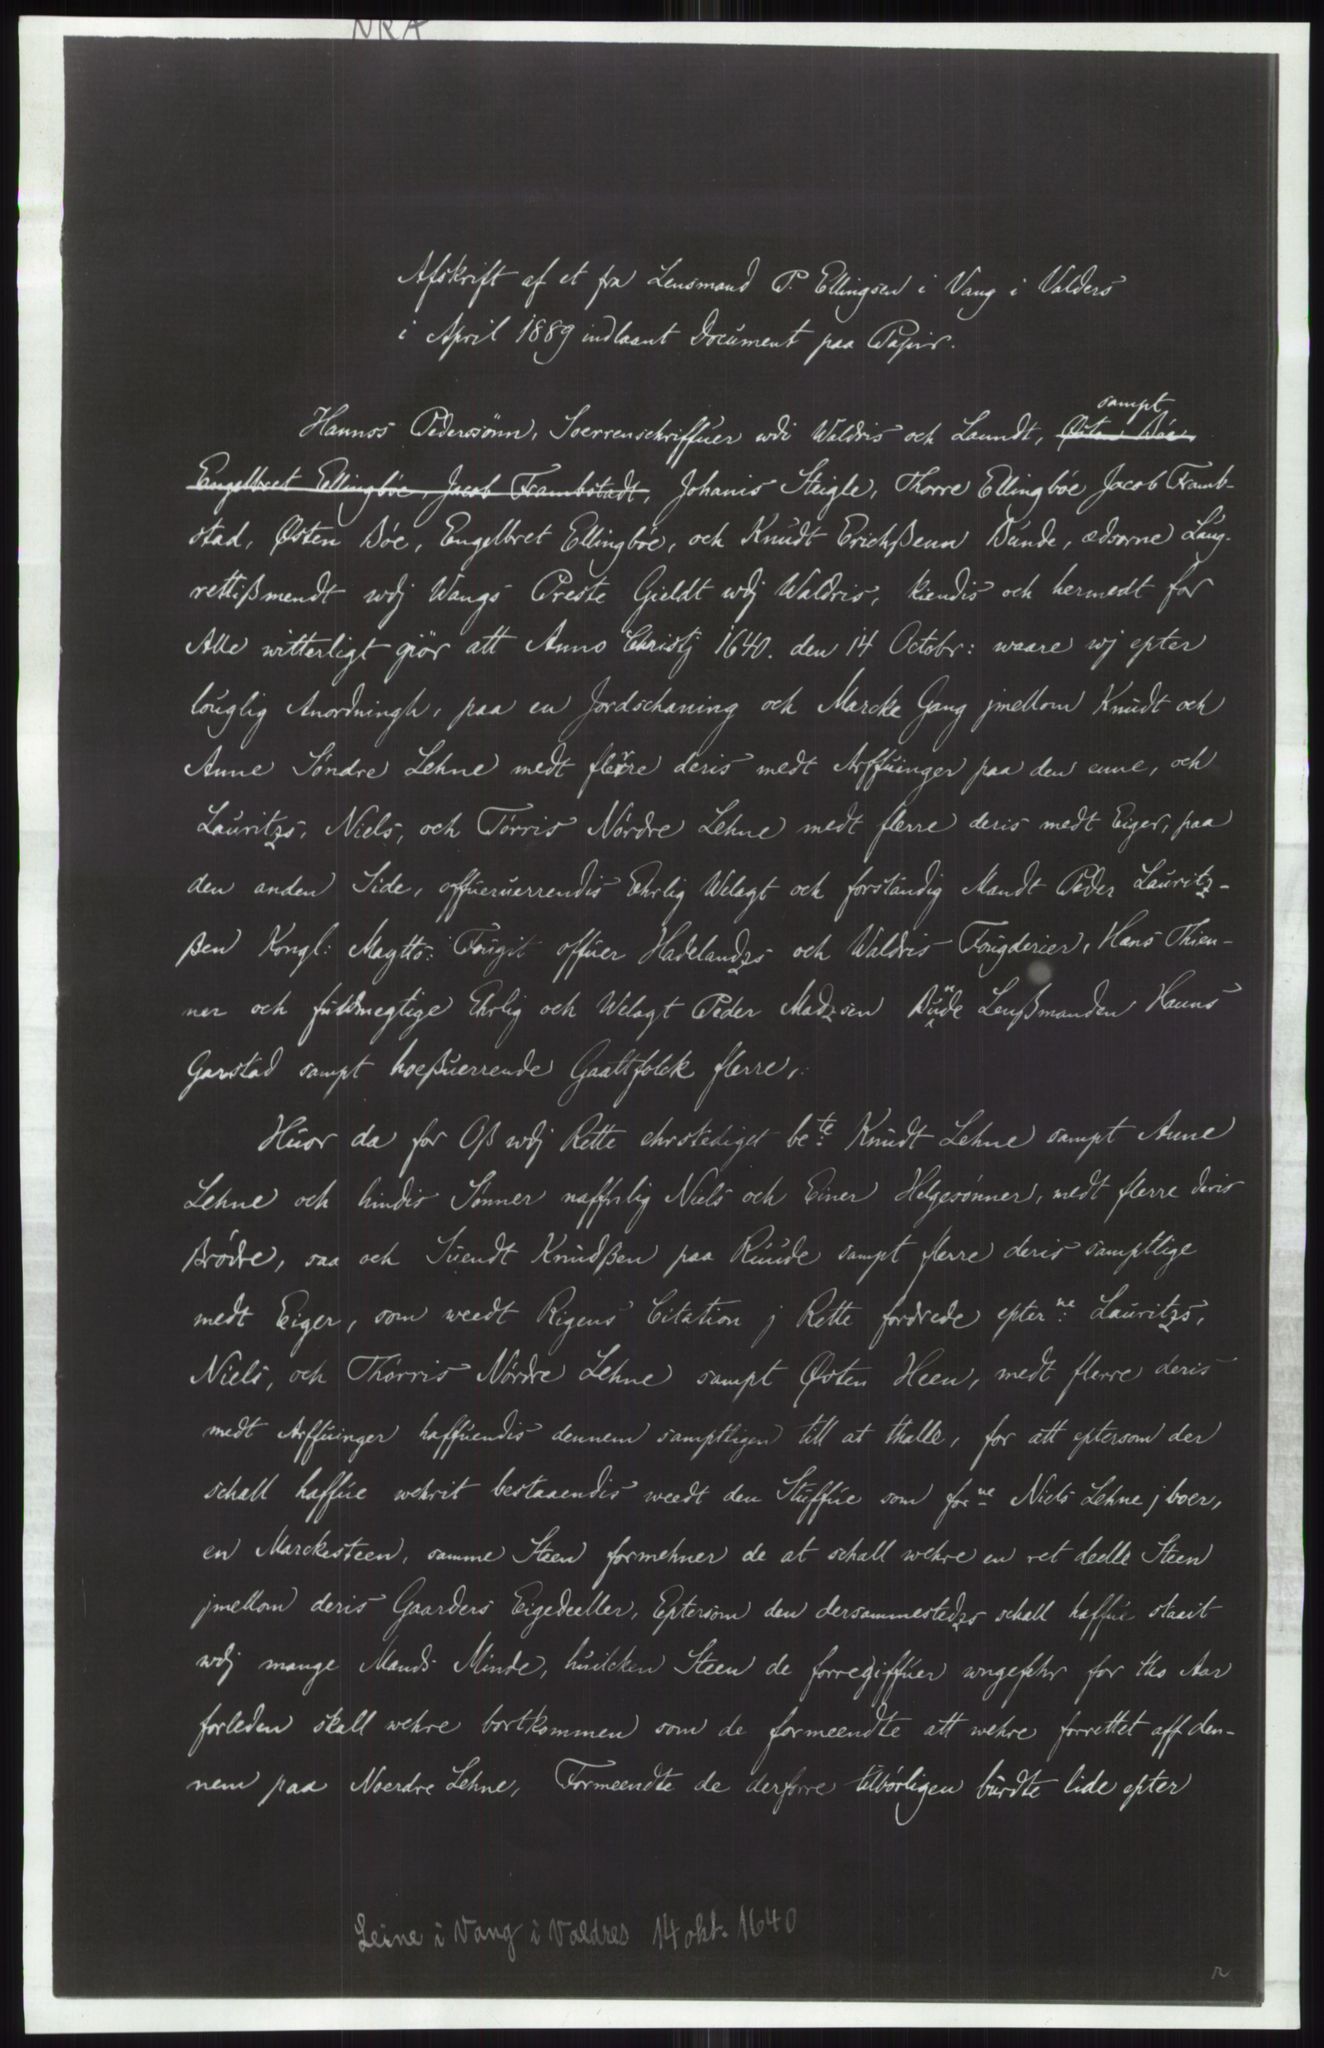 NRA
Afskrift af et fra Lensmand P. Ellingsen i Vang i Valders
i April 1889 indlaant Document paa Papir.
sampt
Hannss Pederssönn, Soerrenschriffuer wdi Waldris och Laundt, Østen Böe
Engelbret Ellingböe, Jacob Frambstadt, Johanis Steigle, Thorre Ellingböe Jacob Framb-
stad, Østen Böe, Engelbret Ellingböe, och Knúdt Erichßenn Búnde, ædsorne Laúg-
rettißmendt wdj Wangs Preste Gieldt wdj Waldris, kiendis och hermedt for
Alle witterligt giör att Anno Christj 1640. den 14 Octobr: waare wj epter
loúglig Anordningh, paa en Jordschaning och Marcke Gang jmellom Knúdt och
Anne Söndre Lehne medt flerre deris medt Arffúinger paa den enne, och
Lauritzs, Niels, och Törris Nördre Lehne medt flerre deris medt Eiger, paa
den anden Side, offúerúerrendis Ehrlig Welagt och forstandig Mandt Peder Lauritz-
ßen Kongl: Magtts: Foúgit offúer Hadelandzs och Waldris Foúgderier, Hans Thien-
ner och fuldmegtige Ehrlig och Welagt Peder Madzsen Búnde Lenßmanden Hanns
Gavstad sampt hoeßúerrende Gaattfolck flerre,
Húor da for Oß wdj Rette ehrstediget be:te Knúdt Lehne sampt Anne
Lehne och hindis Sönner naffnlig Niels och Einer Helgesönner, medt flerre deris
Brödre, saa och Súendt Knúdßen paa Rúúde sampt flerre deris samptlige
medt Eiger, som weedt Rigens Citation j Rette fordrede epter:ne Lauritzs,
Niels, och Thörris Nördre Lehne sampt Østen Heen, medt flerre deris
medt Arffúinger haffúendis dennem samptligen till at thalle, for att eptersom der
schall haffúe wehrit bestaaendis weedt den Stúffúe som for:ne Niels Lehne j boer,
en Marckesteen, samme Steen formehner de at schall wehre en ret deelle Steen
jmellom deris Gaarders Eigedeeller, Eptersom den dersammestedzs schall haffúe staait
wdj mange Mands Minde, húilcken Steen de forregiffúer wngefehr for tho Aar
forleden skall wehre bortkommen som de formeendte att wehre forrettet aff den-
nem paa Noerdre Lehne, Formeendte de derforre tilbörligen búrdte lide epter
Leine i Vang i Valdres 14 okt. 1640